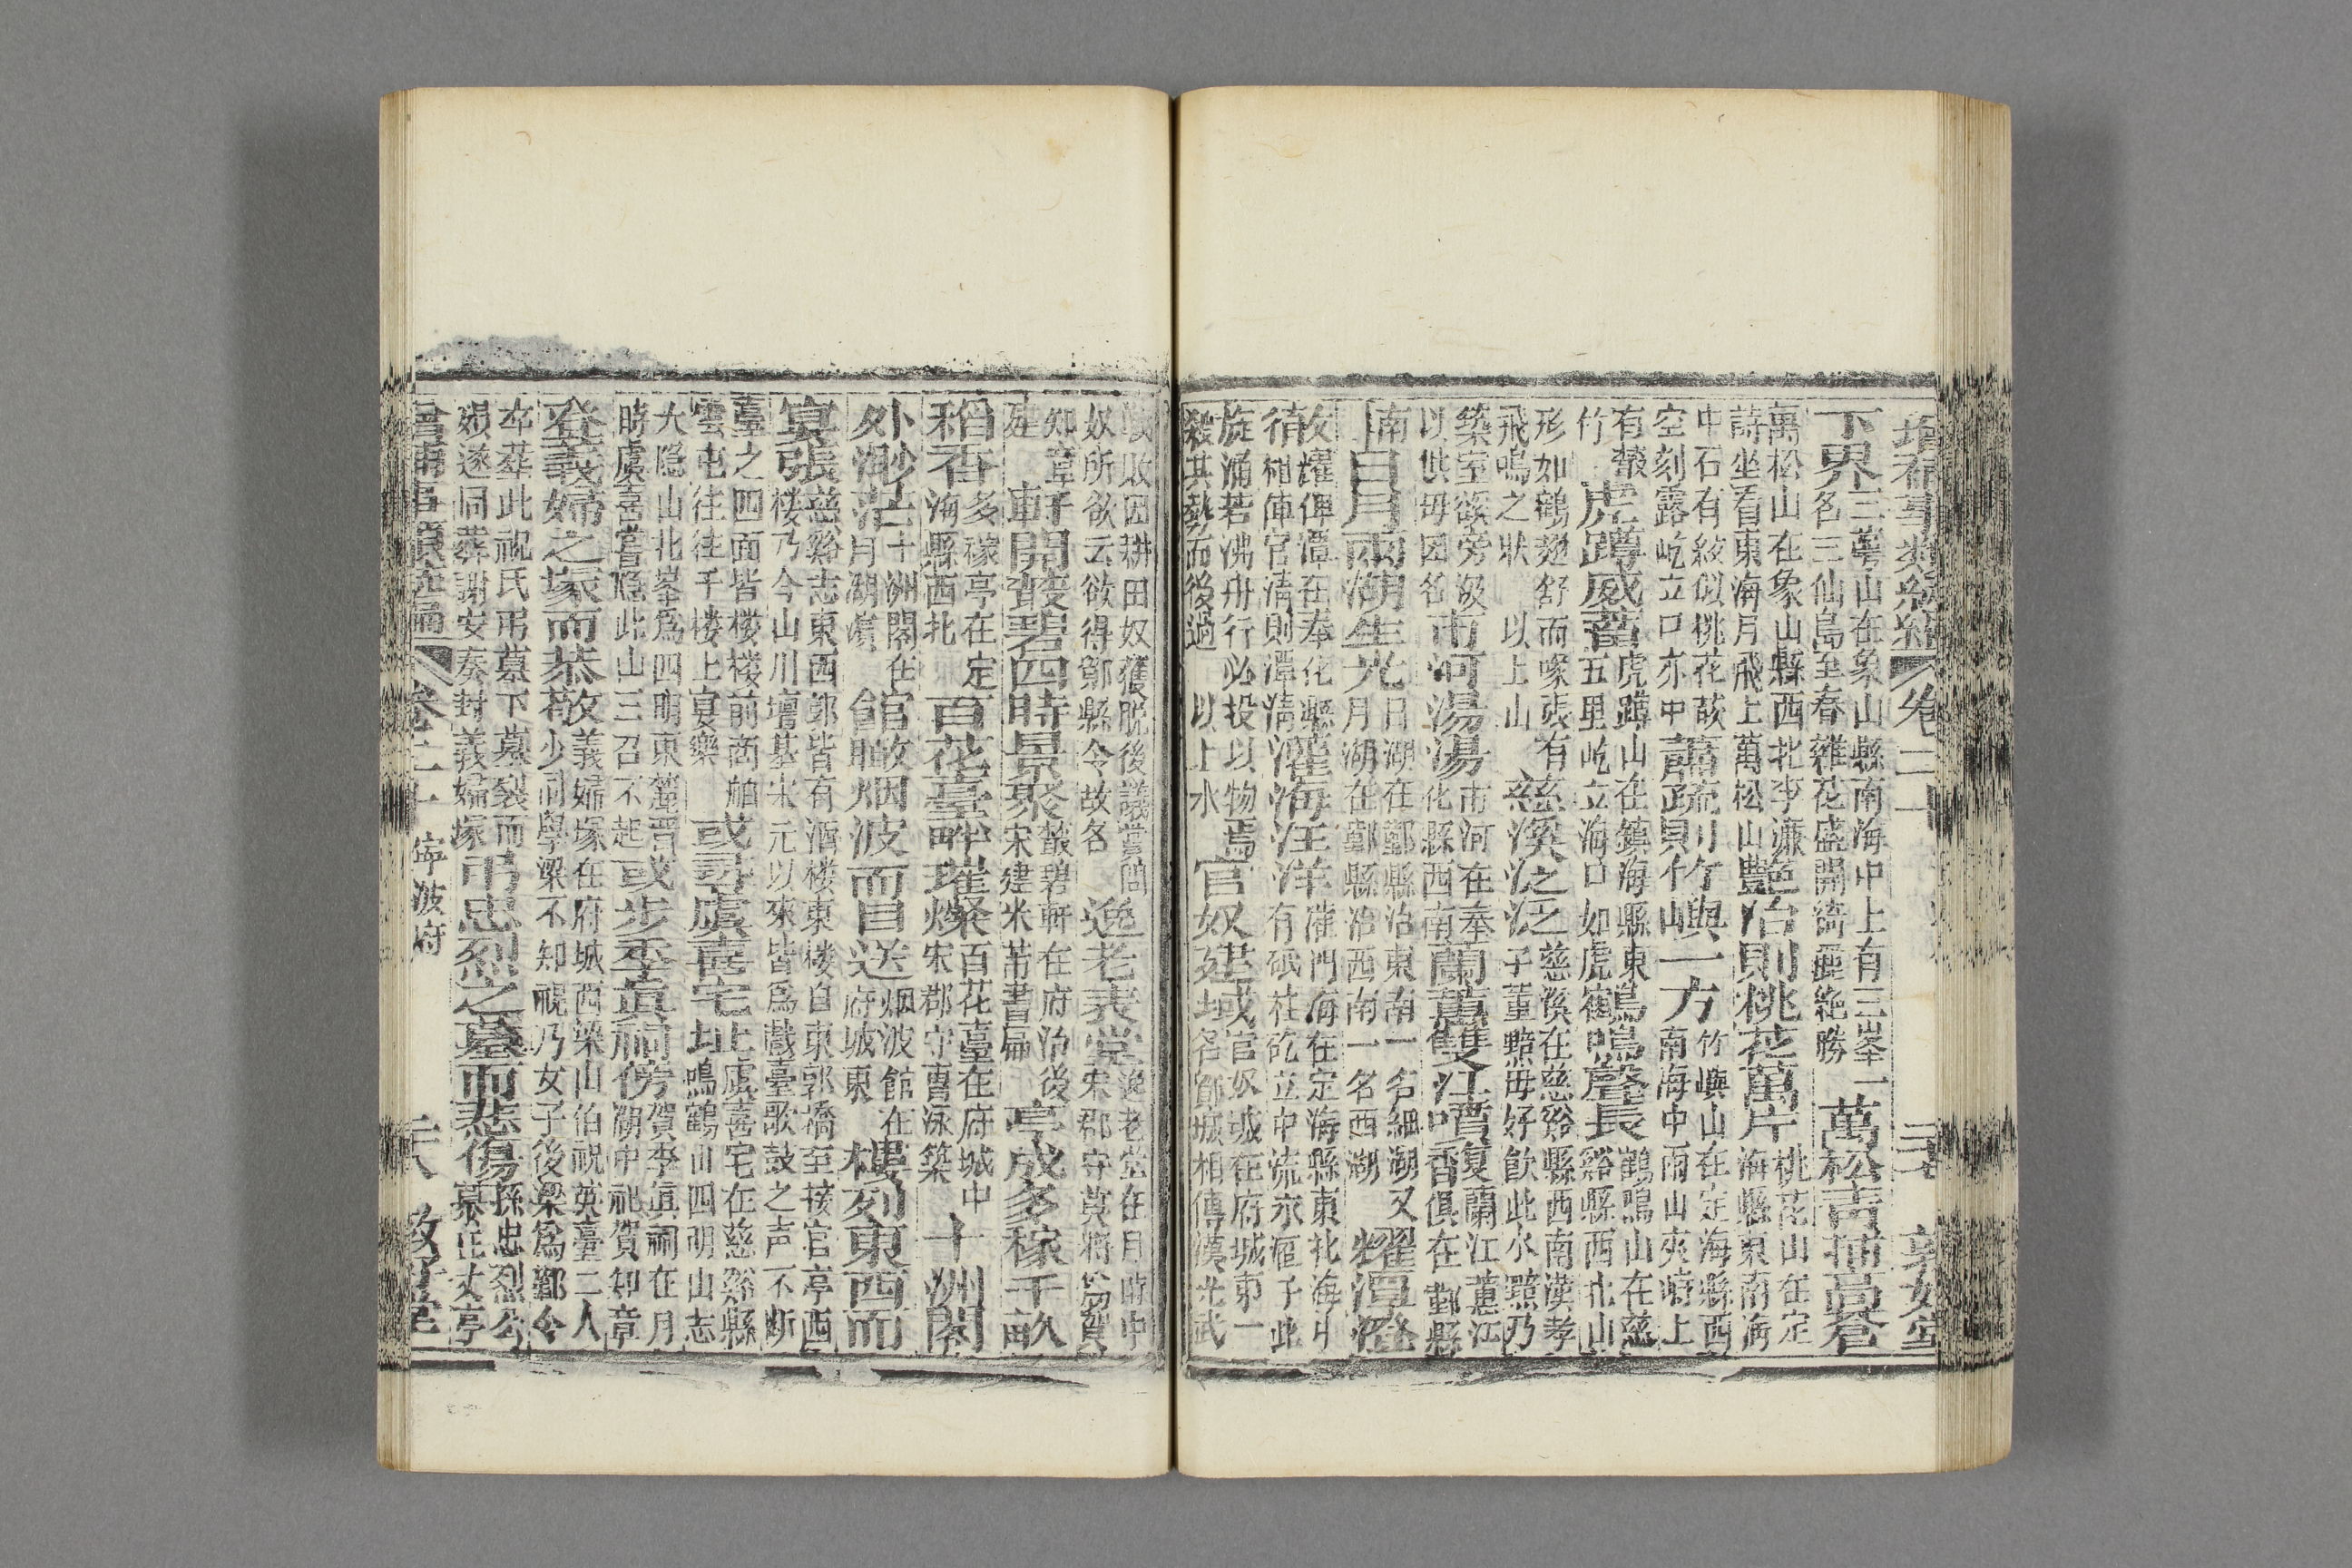 增補事類統編 卷二十 三七 敦好堂
下界三萼山在象山縣南海中上有三峯一
名三仙島至春雜花盛開綺麗絶勝萬松青插高蒼
萬松山在象山縣西北李濂
詩坐看東海月飛上萬松山豔冶則桃花萬片桃花山在定
海縣東南海
中石有紋似桃花故
空刻露屹立口亦中蕭疏則竹嶼一方竹嶼山在定海縣西
南海中兩山夾峙上
有叢
竹虎蹲威蓄虎蹲山在鎮海縣東
五里屹立海口如虎鶴鳴聲長鶴鳴山在慈
谿縣西北山
形如鶴翅舒而喙張有
飛鳴之狀 以上山慈溪泛泛慈溪在慈谿縣西南漢孝
子董黯毋好飲此水黯乃
築室溪旁汲
以供毋因名市河湯湯市河在奉
化縣西南蘭蕙雙江嘖複蘭江蕙江
香俱在鄞縣
南日月兩湖生光日湖在鄞縣治東南一名細湖又
月湖在鄞縣治西南一名西湖耀潭澄
躍俥潭在奉化縣
相俥官清則潭清灌海汪洋灌門海在定海縣東北海中
有砥柱矻立中流水洄于此
旋涌若沸舟行必投以物焉
殺其勢而後過 以上水官奴建城官奴城在府城東一
名鄮城相傳漢光武
戰敗因耕田奴獲脱後議賞問
奴所欲云欲得鄮縣令故名逸老表堂逸老堂在月時中
宋郡守莫將爲賀
知章
建軒開叢碧四時景聚叢碧軒在府治後
宋建米芾書扁亭成多稼千畝
稻香多稼亭在定
海縣西北百花臺畔璀燦百花臺在府城中
宋郡守曹泳築十洲閣
外渺茫十洲閣在
月湖濱館瞰烟波而目送烟波館在
府城東樓列東西而
宴張慈谿志東西郭皆有酒楼東楼自東郭橋至接官亭西
楼乃今山川壇基宋元以來皆爲戲臺歌鼓之声不断
臺之四面皆楼楼前商舶
雲屯往往千楼上宴樂或尋虞喜宅址虞喜宅在慈谿縣
鳴鶴山四明山志
大隐山北峯爲四明東麓晋
時虞喜嘗隱此山三召不起或步季眞祠傍賀季眞祠在月
湖中祀賀知章
登義婦之塚而恭敬義婦塚在府城西梁山伯祝英臺二人
少同學梁不知祝乃女子後梁爲鄞令
卒葬此祝氏弔墓下墓裂而
殞遂同葬謝安奏封義婦塚弔忠烈之墓而悲傷孫忠烈公
墓在丈亭
增補事類統編 卷二十 寧波府 三八 敦好堂